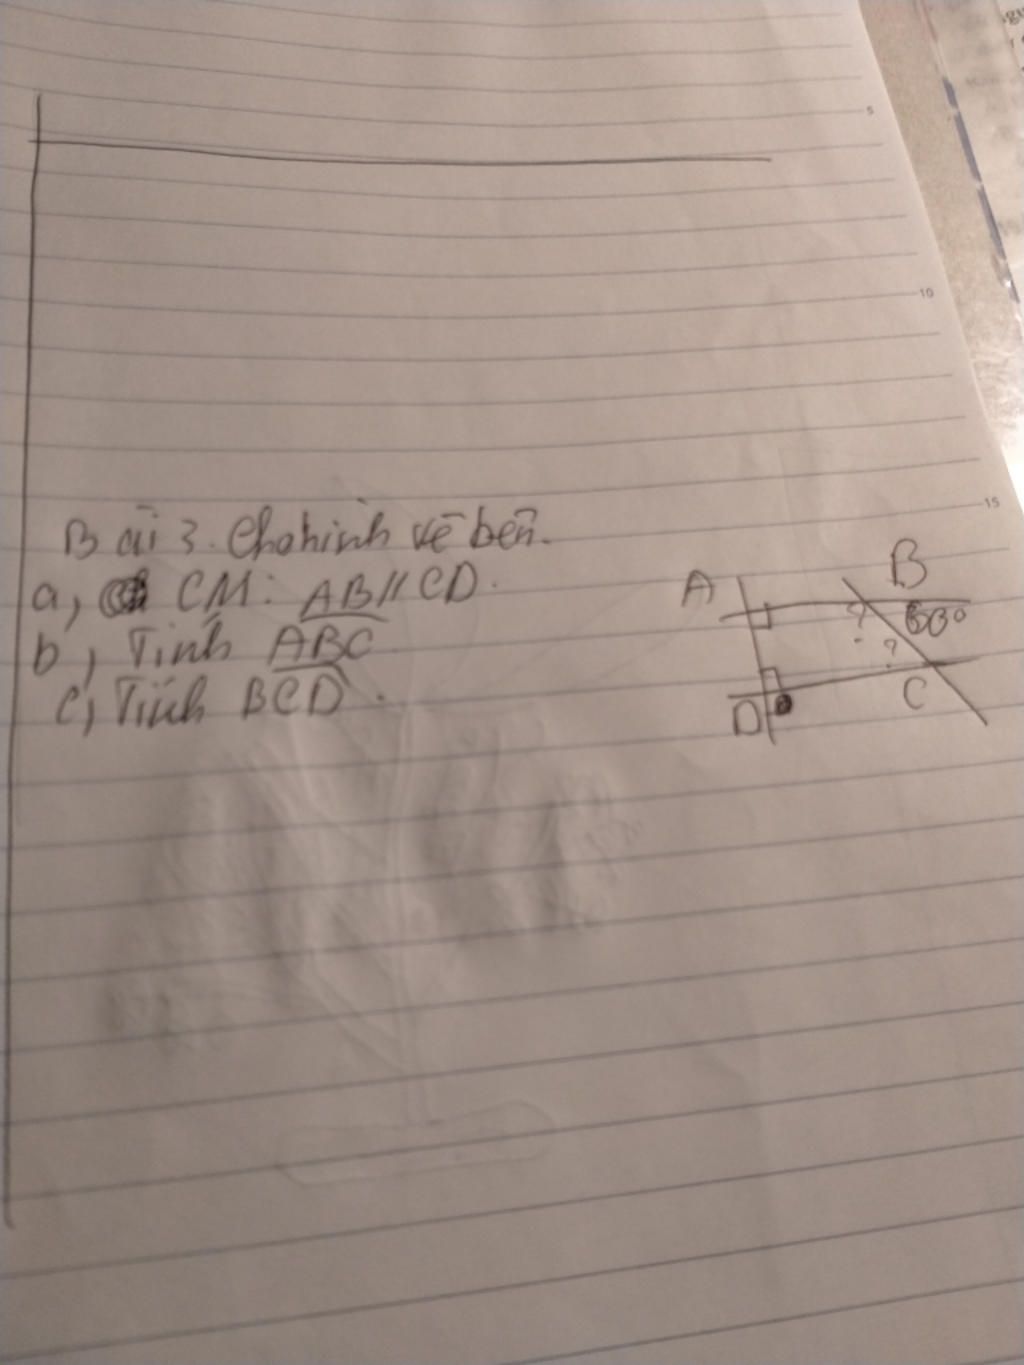 5
10
15
Bài 3. Cho hình vẽ bên.
a, CM: AB // CD.
b, Tính ABC
c, Tính BCD.
A B
? 60°
?
D C